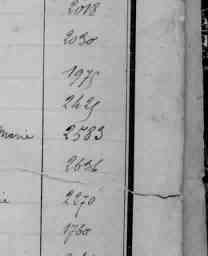 2018
2030
1975
2425
marie 2583
2636
ie 2270
1760